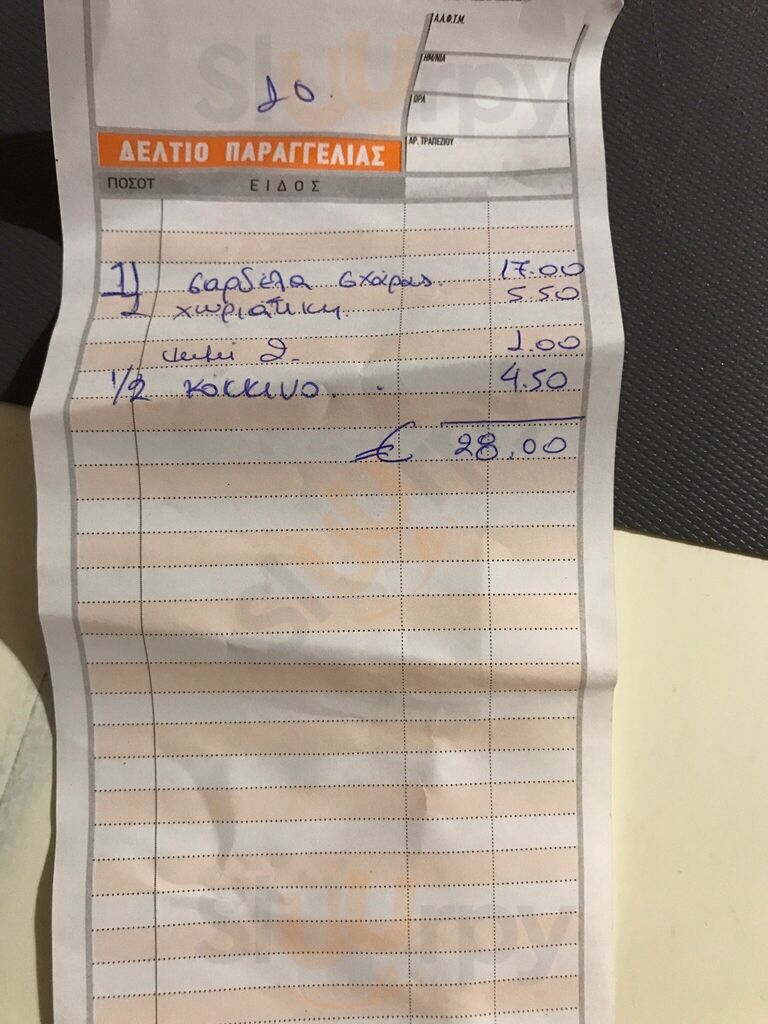 Α.Α.Φ.Τ.Μ.
ΗΜ/ΝΙΑ
ΩΡΑ
ΑΡ. ΤΡΑΠΕΖΙΟΥ
20.
ΔΕΛΤΙΟ ΠΑΡΑΓΓΕΛΙΑΣ
ΠΟΣΟΤ ΕΙΔΟΣ
σαρδέλα σχάρας. 17.00
χωριάτικη 5.50
ψωμί 2. 1.00
1/2 κόκκινο. 4.50
€ 28.00
sluurpy
sluurpy
sluurpy